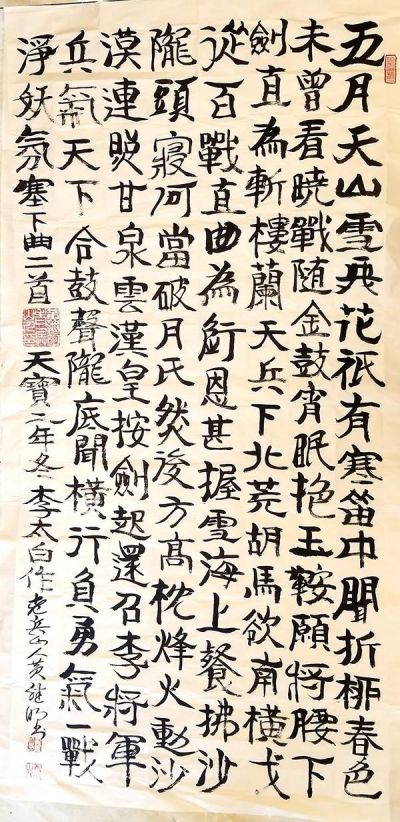 五月天山雪无花祇有寒笛中聞折柳春色
未曾看曉戰随金鼓宵眠抱玉鞍願將腰下
劍直為斬樓蘭天兵下北荒胡馬欲南橫戈
從百戰直曲為銜恩甚握雪海上餐拂沙
隴頭寢何當破月氏然後方高枕烽火動沙
漠連照甘泉雲漢皇按劍起還召李將軍
兵氣天下合鼓聲隴底聞橫行負勇氣一戰
淨妖氛塞下曲二首
天寶二年冬李太白作